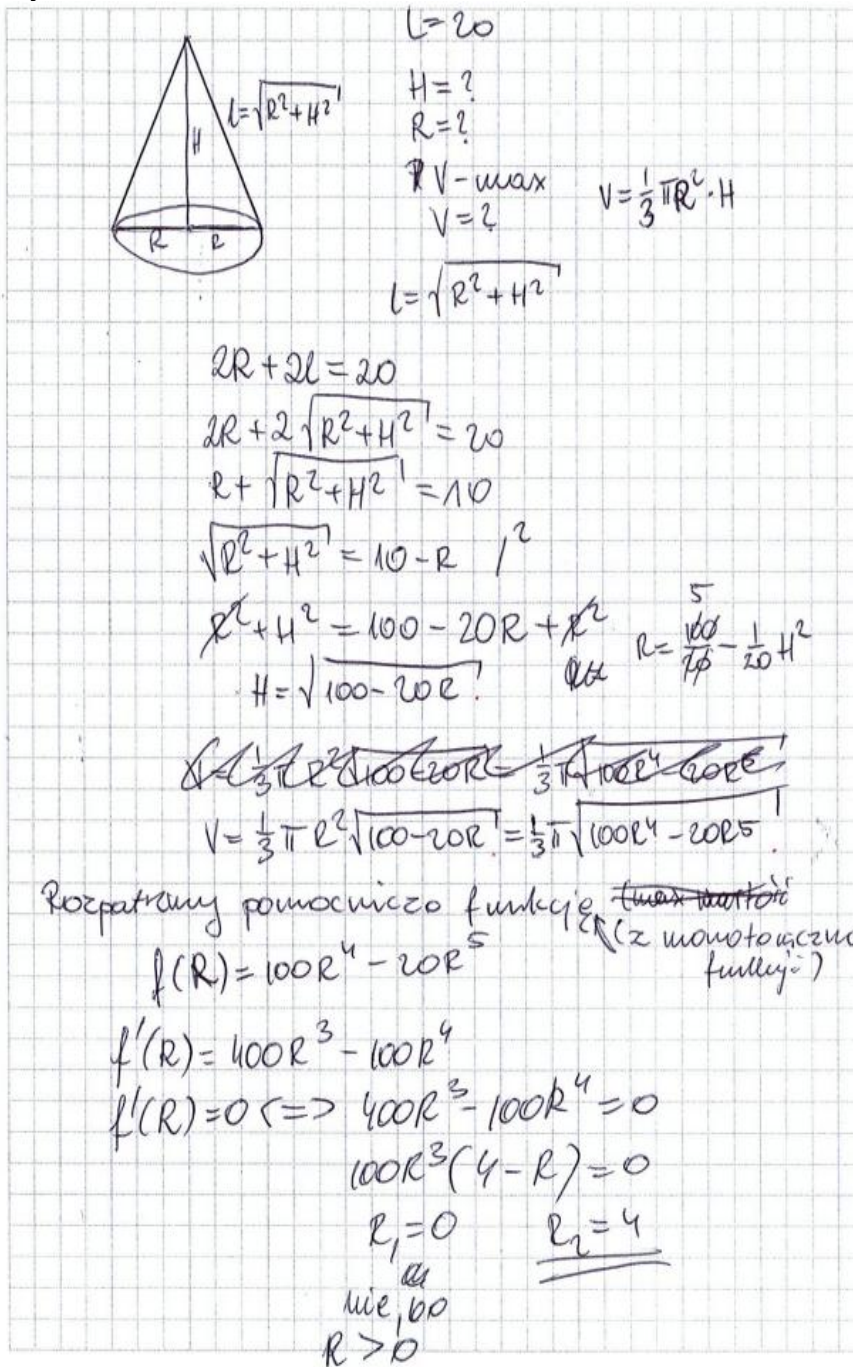 L=20
l=√(R²+H²)
H
R R
H=?
R=?
V-max
V=?
V=1/3 πR²·H
l=√(R²+H²)
2R+2l=20
2R+2√(R²+H²)=20
R+√(R²+H²)=10
√(R²+H²)=10-R /²
R²+H²=100-20R+R²
R=100/20-1/20 H²
5
H=√(100-20R)
V=1/3 πR²√(100-20R)=1/3 π√(100R⁴-20R⁵)
V=1/3 πR²√(100-20R)=1/3 π√(100R⁴-20R⁵)
Rozpatrzmy pomocniczo funkcję (max wartość
(z monotoniczno
funkcji)
f(R)=100R⁴-20R⁵
f'(R)=400R³-100R⁴
f'(R)=0<=> 400R³-100R⁴=0
100R³(4-R)=0
R₁=0 R₂=4
nie, bo
R>0